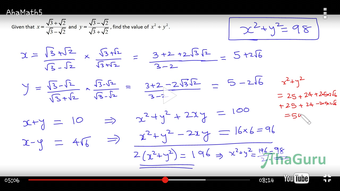 AhaMath5
Given that x = (√3+√2)/(√3−√2) and y = (√3−√2)/(√3+√2), find the value of x² + y².
x²+y² = 98
x = (√3+√2)/(√3−√2) × (√3+√2)/(√3+√2) = (3+2+2√3√2)/(3−2) = 5+2√6
y = (√3−√2)/(√3+√2) × (√3−√2)/(√3−√2) = (3+2−2√3√2)/(3−2) = 5−2√6
x²+y²
= 25+24+
+25+24
=50
x+y = 10 ⇒ x²+y²+2xy = 100
x−y = 4√6 ⇒ x²+y²−2xy = 16×6 = 96
2(x²+y²) = 196 ⇒ x²+y² = 98
AhaGuru
05:06
08:14